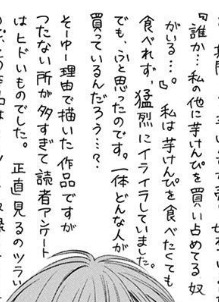 『誰か…私の他に芋けんぴを買い占めてる奴
がいる…。』私は芋けんぴを食べたくても
食べれず、猛烈にイライラしていました。
でも、ふと思ったのです。一体どんな人が
買っているんだろう…?
そーゆー理由で描いた作品ですが
つたない所が多すぎて読者アンケート
はヒドいものでした。正直見るのツライ